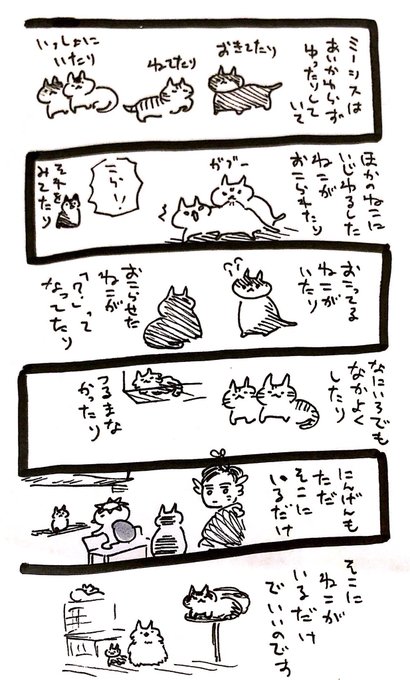 ミーシスは
あいかわらず
ゆったりして
いて
おきてたり
ねてたり
いっしょに
いたり
ほかのねこに
いじわるした
ねこが
おこられたり
がブー
こらっ!
それを
みてたり
おこってる
ねこが
いたり
おこらせた
ねこが
「?」って
なってたり
なにいろでも
なかよく
したり
つるまな
かったり
にんげんも
ただ
そこに
いるだけ
そこに
ねこが
いるだけ
でいいのです